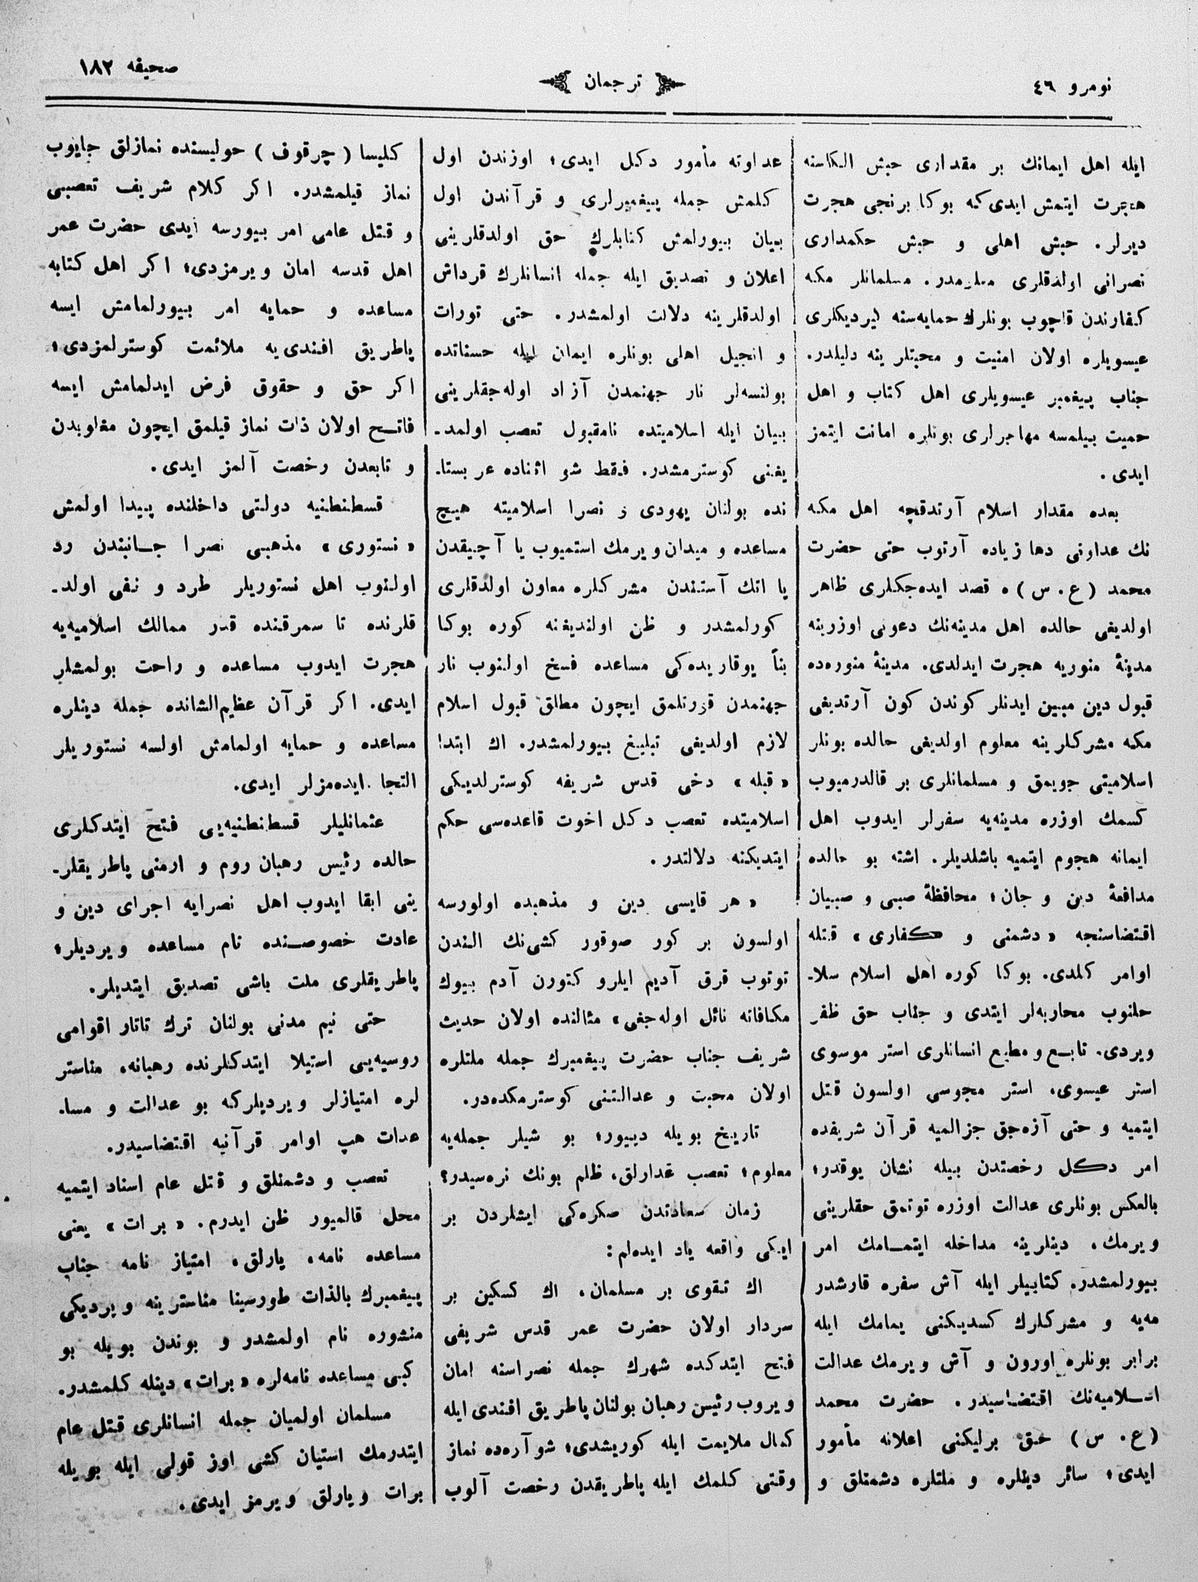 نومرو ٤٦
ترجمان
صحیفه ١٨٢
ایله اهل ایمانك بر مقداری حبش الكاسنه
هجرت ایتمش ایدی‌كه بوكا برنجی هجرت
دیرلر. حبش اهلی و حبش حكمداری
نصرانی اولدقلری معلومدر. مسلمانلر مكه
كفارندن قاچوب بونلرك حمایه‌سنه لیردیكلری
عیسویلره اولان امنیت و محبتلرینه دلیلدر.
جناب پیغمبر عیسویلری اهل كتاب و اهل
حمیت بیلمسه مهاجرلری بونلره امانت ایتمز
ایدی.
بعده مقدار اسلام آرتدقچه اهل مكه
نك عداوتی دها زیاده آرتوب حتی حضرت
محمد (ع. س)ه قصد ایده‌جكلری ظاهر
اولدیغی حالده اهل مدینه‌نك دعوتی اوزرینه
مدینهٔ منوریه هجرت ایدلدی. مدینهٔ منوره‌ده
قبول دین مبین ایدنلر كوندن كون آرتدیغی
مكه مشركلرینه معلوم اولدیغی حالده بونلر
اسلامیتی جویمق و مسلمانلری بر قالدرمیوب
كسمك اوزره مدینه‌یه سفرلر ایدوب اهل
ایمانه هجوم ایتمیه باشلدیلر. اشته بو حالده
مدافعهٔ دین و جان؛ محافظهٔ صبی و صبیان
اقتضاسنجه «دشمنی و كفاری» قتله
اوامر كلدی. بوكا كوره اهل اسلام سلا۔
حلنوب محاربه‌لر ایتدی و جناب حق ظفر
ویردی. تابع و مطیع انسانلری استر موسوی
استر عیسوی، استر مجوسی اولسون قتل
ایتمیه و حتی آزه‌جق جزالمیه قرآن شریفده
امر دكل رخصتدن بیله نشان یوقدر؛
بالعكس بونلری عدالت اوزره توتمق حقلرینی
ویرمك، دینلرینه مداخله ایتمامك امر
بیورلمشدر. كتابیلر ایله آش سفره قارشدر
مه‌یه و مشركلرك كسدیكنی یمامك ایله
برابر بونلره اورون و آش ویرمك عدالت
اسلامیه‌نك اقتضاسیدر. حضرت محمد
(ع. س) حق برلیكنی اعلانه مأمور
ایدی؛ سائر دینلره و ملتلره دشمنلق و
عداوته مأمور دكل ایدی؛ اوزندن اول
كلمش جمله پیغمبرلری و قرآندن اول
بیان بیورلمش كتابلرك حق اولدقلرینی
اعلان و تصدیق ایله جمله انسانلرك قرداش
اولدقلرینه دلالت اولمشدر. حتی تورات
و انجیل اهلی بونلره ایمان ایله حسناتده
بولنسه‌لر نار جهنمدن آزاد اوله‌جقلرینی
بیان ایله اسلامیتده نامقبول تعصب اولمد۔
یغنی كوسترمشدر. فقط شو اثناده عربستا۔
نده بولنان یهودی و نصرا اسلامیته هیچ
مساعده و میدان ویرمك استمیوب یا آچیقدن
یا انك آستندن مشركلره معاون اولدقلری
كورلمشدر و ظن اولندیغنه كوره بوكا
بنأ یوقاریده‌كی مساعده فسخ اولنوب نار
جهنمدن قورتلمق ایچون مطلق قبول اسلام
لازم اولدیغی تبلیغ بیورلمشدر. اك ابتدا
«قبله» دخی قدس شریفه كوسترلدیكی
اسلامیتده تعصب دكل اخوت قاعده‌سی حكم
ایتدیكنه دلالتدر.
«هر قایسی دین و مذهبده اولورسه
اولسون بر كور صوقور كشی‌نك الندن
توتوب قرق آدیم ایلرو كتورن آدم بیوك
مكافانه نائل اوله‌جغی» مثالنده اولان حدیث
شریف جناب حضرت پیغمبرك جمله ملتلره
اولان محبت و عدالتنی كوسترمكده‌در.
تاریخ بویله دیبور؛ بو شیلر جمله‌یه
معلوم؛ تعصب غدارلق، ظلم بونك نره‌سیدر؟
زمان سعادتدن صكره‌كی ایشلردن بر
ایكی واقعه یاد ایده‌لم:
اك تقوی بر مسلمان، اك كسكین بر
سردار اولان حضرت عمر قدس شریفی
فتح ایتدكده شهرك جمله نصراسنه امان
ویروب رئیس رهبان بولنان پاطریق افندی ایله
كمال ملایمت ایله كوریشدی؛ شو آره‌ده نماز
وقتی كلمك ایله پاطریقدن رخصت آلوب
كلیسا (چرقوف) حولیسنده نمازلق جایوب
نماز قیلمشدر. اكر كلام شریف تعصبی
و قتل عامی امر بیورسه ایدی حضرت عمر
اهل قدسه امان ویرمزدی؛ اكر اهل كتابه
مساعده و حمایه امر بیورلمامش ایسه
پاطریق افندی‌یه ملائمت كوسترلمزدی؛
اكر حق و حقوق فرض ایدلمامش ایسه
فاتح اولان ذات نماز قیلمق ایچون مغلوبدن
و تابعدن رخصت آلمز ایدی.
قسطنطنیه دولتی داخلنده پیدا اولمش
«نستوری» مذهبی نصرا جانبندن رد
اولنوب اهل نستوریلر طرد و نفی اولد۔
قلرنده تا سمرقنده قدر ممالك اسلامیه‌یه
هجرت ایدوب مساعده و راحت بولمشلر
ایدی. اكر قرآن عظیم‌الشانده جمله دینلره
مساعده و حمایه اولمامش اولسه نستوریلر
التجا ایده‌مزلر ایدی.
عثمانلیلر قسطنطنیه‌یی فتح ایتدكلری
حالده رئیس رهبان روم و ارمنی پاطریقلر۔
ینی ابقا ایدوب اهل نصرایه اجرای دین و
عادت خصوصنده تام مساعده ویردیلر؛
پاطریقلری ملت باشی تصدیق ایتدیلر.
حتی نیم مدنی بولنان ترك تاتار اقوامی
روسیه‌یی استیلا ایتدكلرنده رهبانه، مناستر
لره امتیازلر ویردیلركه بو عدالت و مسا۔
عدات هپ اوامر قرآنیه اقتضاسیدر.
تعصب و دشمنلق و قتل عام اسناد ایتمیه
محل قالمیور ظن ایدرم. «برات» یعنی
مساعده نامه، یارلق، امتیاز نامه جناب
پیغمبرك بالذات طورسینا مناسترینه ویردیكی
منشوره نام اولمشدر و بوندن بویله بو
كبی مساعده نامه‌لره «برات» دینله كلمشدر.
مسلمان اولمیان جمله انسانلری قتل عام
ایتدرمك استیان كشی اوز قولی ایله بویله
برات و یارلق ویرمز ایدی.